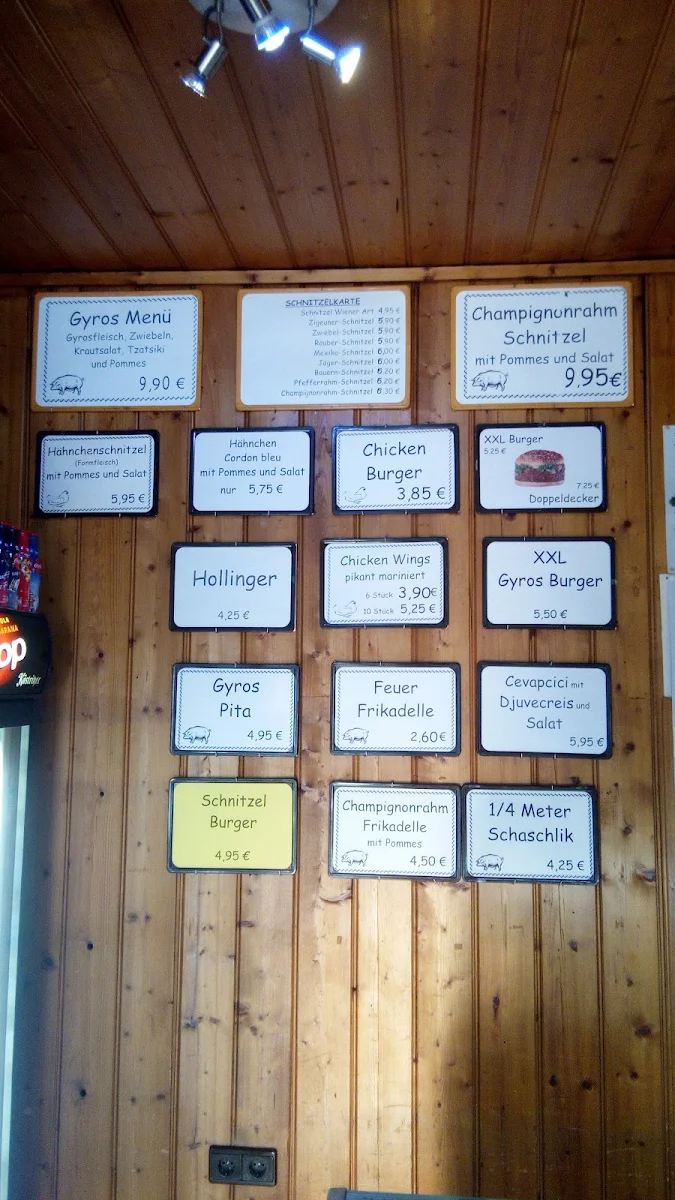 Gyros Menü
Gyrasfleisch, Zwiebeln,
Krautsalat, Tzatsiki
und Pommes
9,90 €
SCHNITZELKARTE
Schnitzel Wiener Art 4,95 €
Zigeuner-Schnitzel 5,90 €
Zwiebel-Schnitzel 5,90 €
Räuber-Schnitzel 5,90 €
Mexiko-Schnitzel 6,00 €
Jäger-Schnitzel 6,00 €
Bauern-Schnitzel 6,20 €
Pfefferrahm-Schnitzel 6,20 €
Champignonrahm-Schnitzel 6,30 €
Champignonrahm
Schnitzel
mit Pommes und Salat
9,95€
Hähnchenschnitzel
(Formfleisch)
mit Pommes und Salat
5,95 €
Hähnchen
Cordon bleu
mit Pommes und Salat
nur 5,75 €
Chicken
Burger
3,85 €
XXL Burger
5,25 €
7,25 €
Doppeldecker
Hollinger
4,25 €
Chicken Wings
pikant mariniert
6 Stück 3,90€
10 Stück 5,25 €
XXL
Gyros Burger
5,50 €
Gyros
Pita
4,95 €
Feuer
Frikadelle
2,60€
Cevapcici mit
Djuvecreis und
Salat
5,95 €
Schnitzel
Burger
4,95 €
Champignonrahm
Frikadelle
mit Pommes
4,50 €
1/4 Meter
Schaschlik
4,25 €
op
Köstritzer